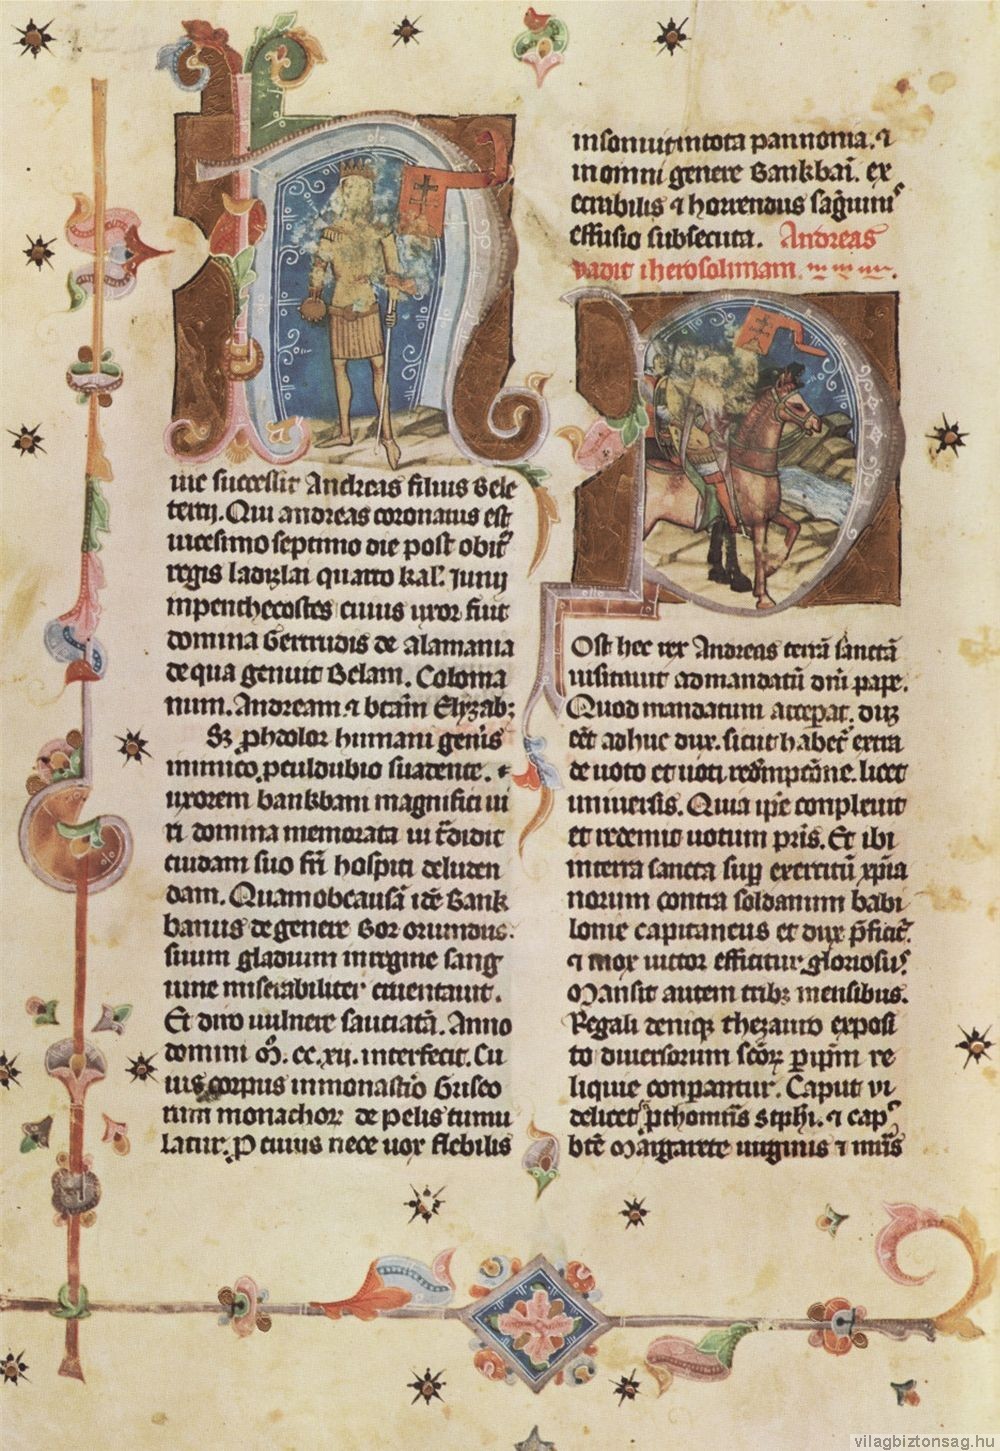 uic successit Andreas filius Bele
tercij. Qui andreas coronatus est
uicesimo septimo die post obit᷑
regis ladizlai quarto kal'. Junij
inpenthecostes cuius uxor fuit
domina Gertrudis de alamania
de qua genuit Belam. Coloma
num. Andream ⁊ btām Elyzab;
Sz ꝓh dolor humani gen̄is
inimico ꝓculdubio suadente. ⁊
uxorem bankbani magnifici ui
ri domina memorata ui t̄didit
cuidam suo fr̄i hospiti deluden
dam. Quam ob causā idē Bank
banus de genere Bor oriundus.
suum gladium in regine sang
uine miserabiliter cruentauit.
Et diro uulnere sauciatā. Anno
domini M̊. cc. xii. interfecit. Cu
ius corpus in monast̄io Griseo
rum monachor̄ de pelis tumu
latur. P cuius nece uox flebilis
in somuit in tota pannonia. ⁊
in omni genere Bankbaī. ex
ecrabilis ⁊ horrendus sāguinis
effusio subsecuta. Andreas
vadit iherosolimam.
P
Ost hec rex Andreas terrā sanctā
uisitauit ad mandatū dn̄i pape.
Quod mandatum accep̄at. dux
cēt adhuc dux. sicut habet᷑ extra
de uoto et uoti redēmptōne. licet
uniuersis. Quia ip̄e conpleuit
et redemit uotum pr̄is. Et ibi
in terra sancta sup̄ exercitū xp̄ia
norum contra soldanum babi
lonie capitaneus et dux p̄ficit᷑.
⁊ mox uictor efficitur gloriosus.
Mansit autem tribꝫ mensibus.
Regali denique thezauro exposi
to diuersorum sc̄oꝝ ꝑ ip̄m re
liquie conꝑantur. Caput vi
delicet ꝓthom̄is Stph̄i. ⁊ cap᷑
btē Margarete uirginis ⁊ man᷑
vilagbiztonsag.hu